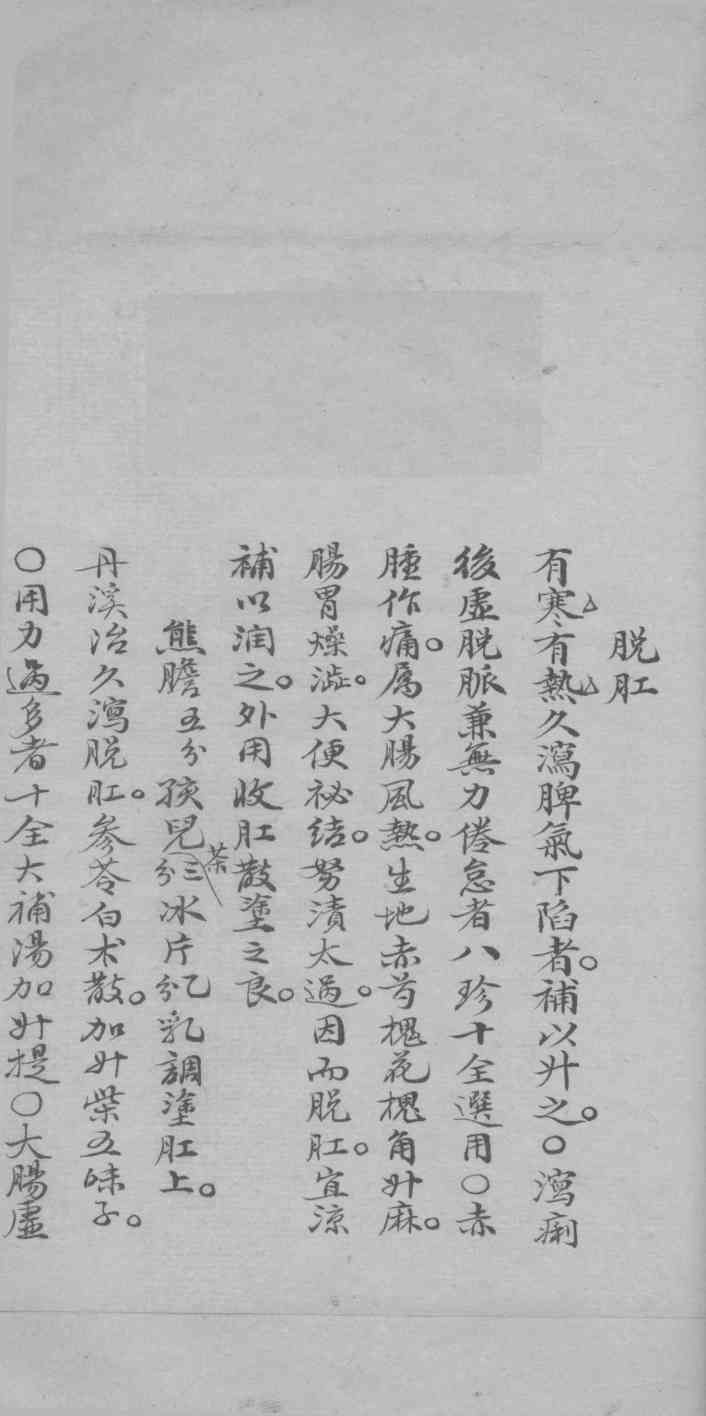 脱肛
有寒有熱久瀉脾氣下陷者。補以升之。○瀉痢
後虛脱脈兼無力倦怠者八珍十全選用○赤
腫作痛。属大腸風熱。生地赤芍槐花槐角升麻。
腸胃燥澁。大便祕结。努漬太過。因而脱肛。宜凉
補以润之。外用收肛散塗之良。
熊膽五分孩兒茶三分冰片乙分乳調塗肛上。
丹溪治久瀉脱肛。參苓白术散。加升柴五味子。
○用力過多者十全大補湯加升提○大腸虛